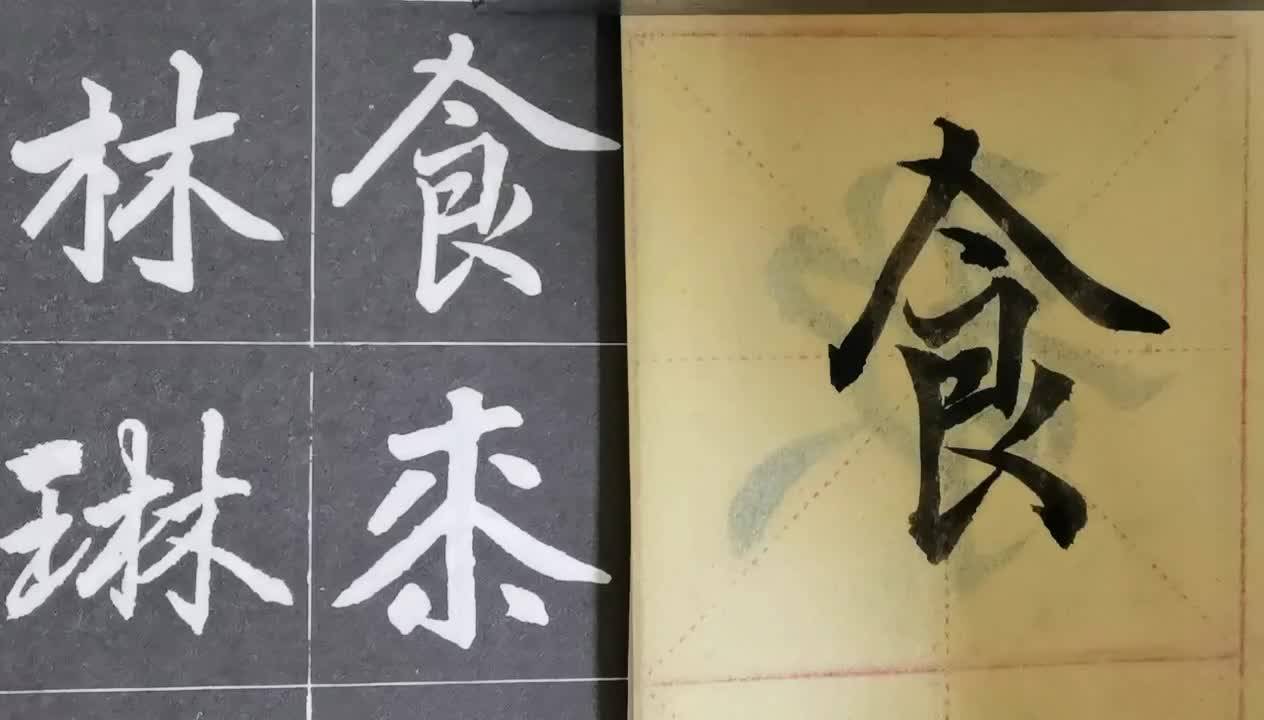 林 食
琳
食